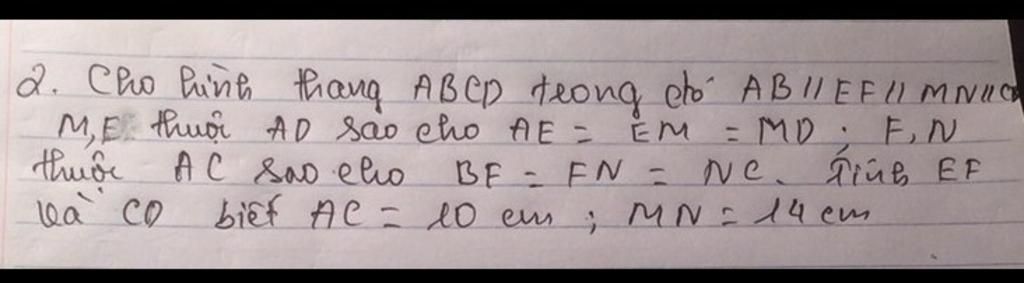 2. Cho hình thang ABCD trong đó AB // EF // MN // CD
M, E thuộc AD sao cho AE = EM = MD ; F, N
thuộc AC sao cho BF = FN = NC. Tính EF
và CD biết AC = 10 cm ; MN = 14 cm